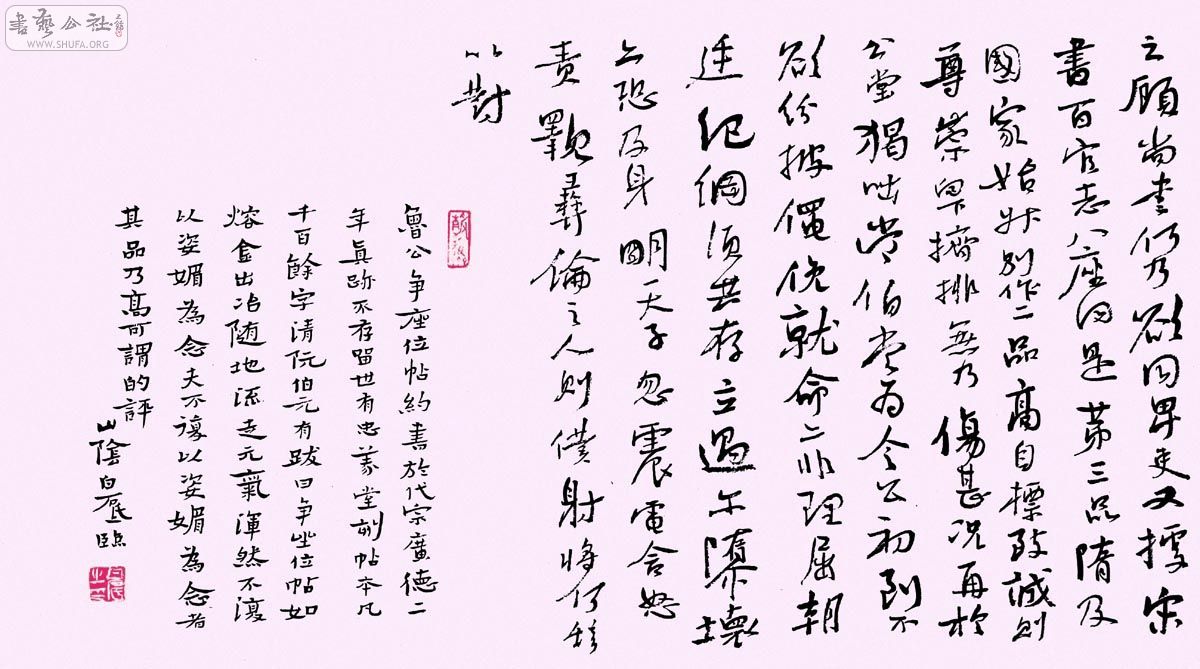 書藝公社
WWW.SHUFA.ORG
之顧尚書仍乃欲同卑吏又據宋
書百官志八座同是第三品隋及
國家始升別作二品高自標致誠則
尊崇向下擠排無乃傷甚況再於
公堂猲咄常伯當為令公初到不
欲紛披僶俛就命亦非理屈朝
廷紀綱須共存立過尔隳壞
亦恐及身明天子忽震電含怒
責斁彝倫之人則僕射將何辭
以對
魯公爭座位帖約書於代宗廣德二
年真跡不存留世有忠義堂刻帖本凡
千百餘字清阮伯元有跋曰爭坐位帖如
熔金出冶隨地流走元氣渾然不復
以姿媚為念夫不復以姿媚為念者
其品乃高可謂的評
山陰臨